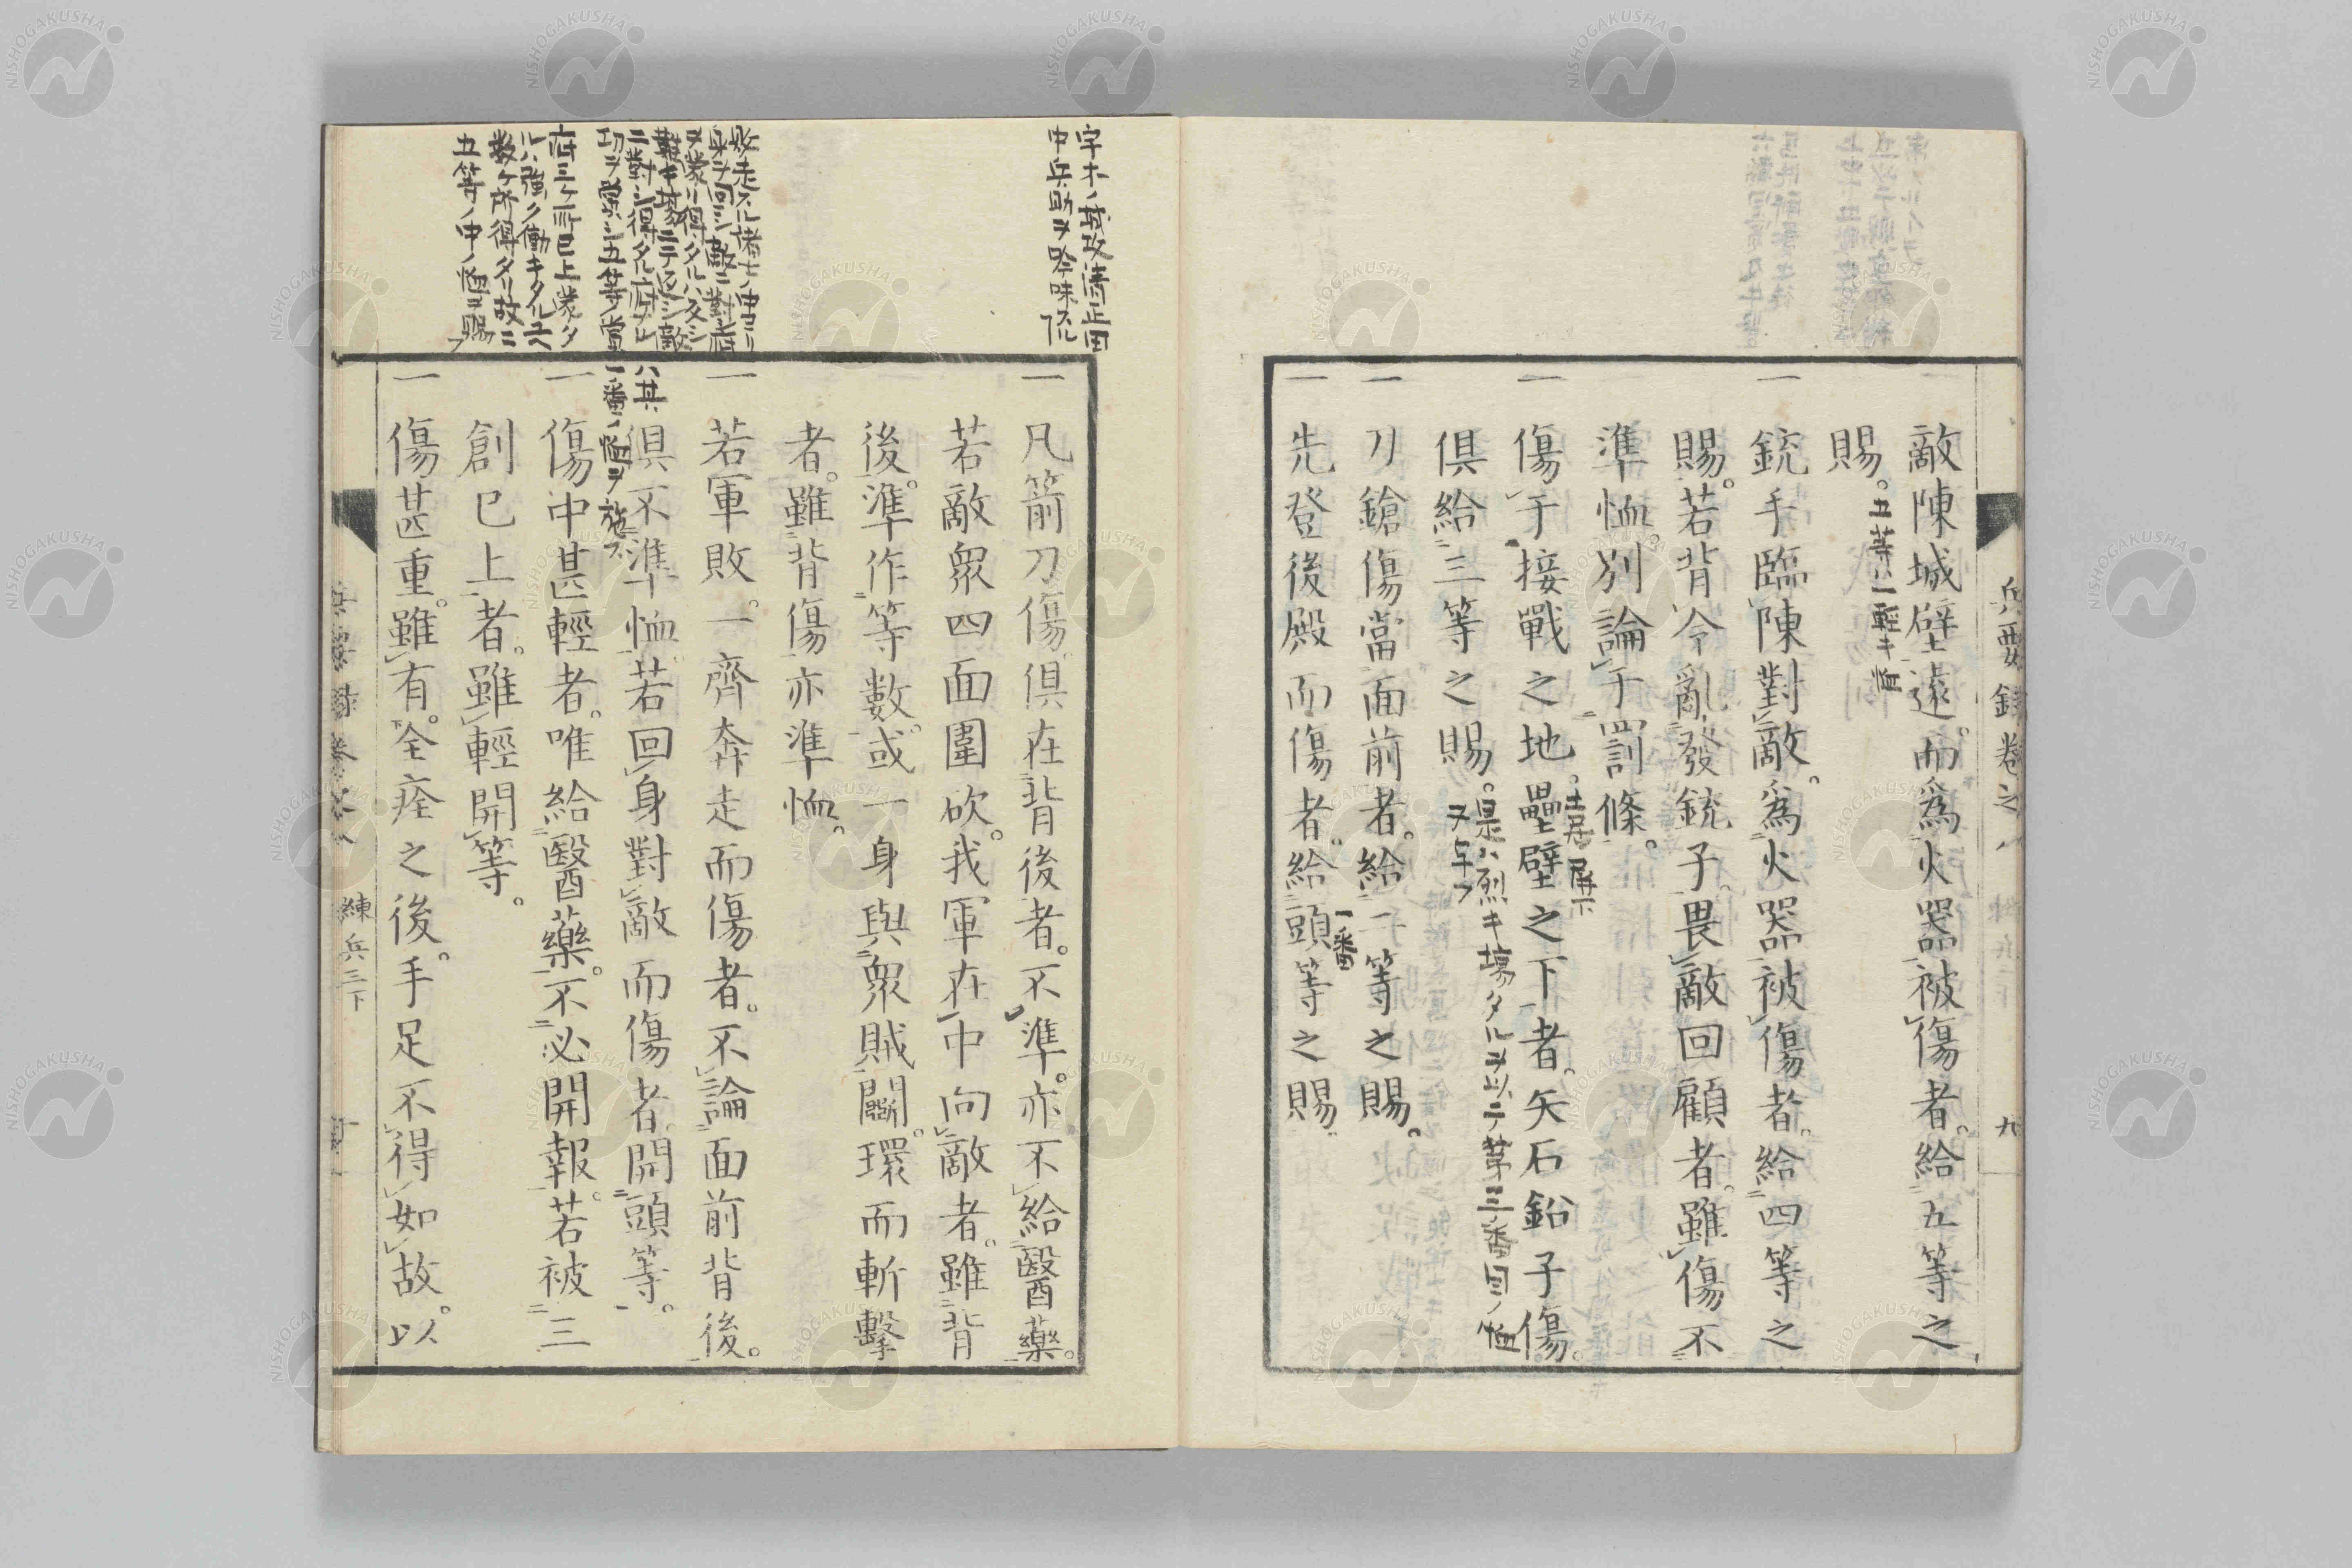 敵陳城壁遠。而爲火器被傷者。給五等之
賜。
五等ハ輕キ
一銃手臨陳對敵。爲火器被傷者。給四等之
賜。若背令亂發銃子。畏敵回顧者。雖傷不
準恤。別論于罰條。
一傷于接戰之地。壘壁之下者。矢石鉛子傷。
俱給三等之賜。
是ハ烈キ場タルヲ以テ第三番目ノ恤
ヲ与フ
一刀鎗傷當面前者。給二等之賜。
一先登後殿而傷者。給頭等之賜。
一番
兵要録卷之八
九
中兵助ヲ吟味
一凡箭刀傷俱在背後者。不準。亦不給醫藥。
若敵衆四面圍砍。我軍在中向敵者。雖背
後。準作等數。或一身與衆賊鬪。環而斬擊
者。雖背傷亦準恤。
一若軍敗。一齊奔走而傷者。不論面前背後。
俱不準恤。若回身對敵而傷者。開頭等。
一傷中甚輕者。唯給醫藥。不必開報。若被三
創已上者。雖輕開等。
一傷甚重。雖有全痊之後。手足不得如故。以
敗走スル諸士ノ中ヨリ
功ヲ賞シ五等ノ賞
一番ノ恤ヲ施ス
疵三ケ所已上蒙タ
ルハ強ク働キタルユヘ
數ケ所得タリ故ニ
五等ノ中ノ恤ヲ賜フ
練兵三下